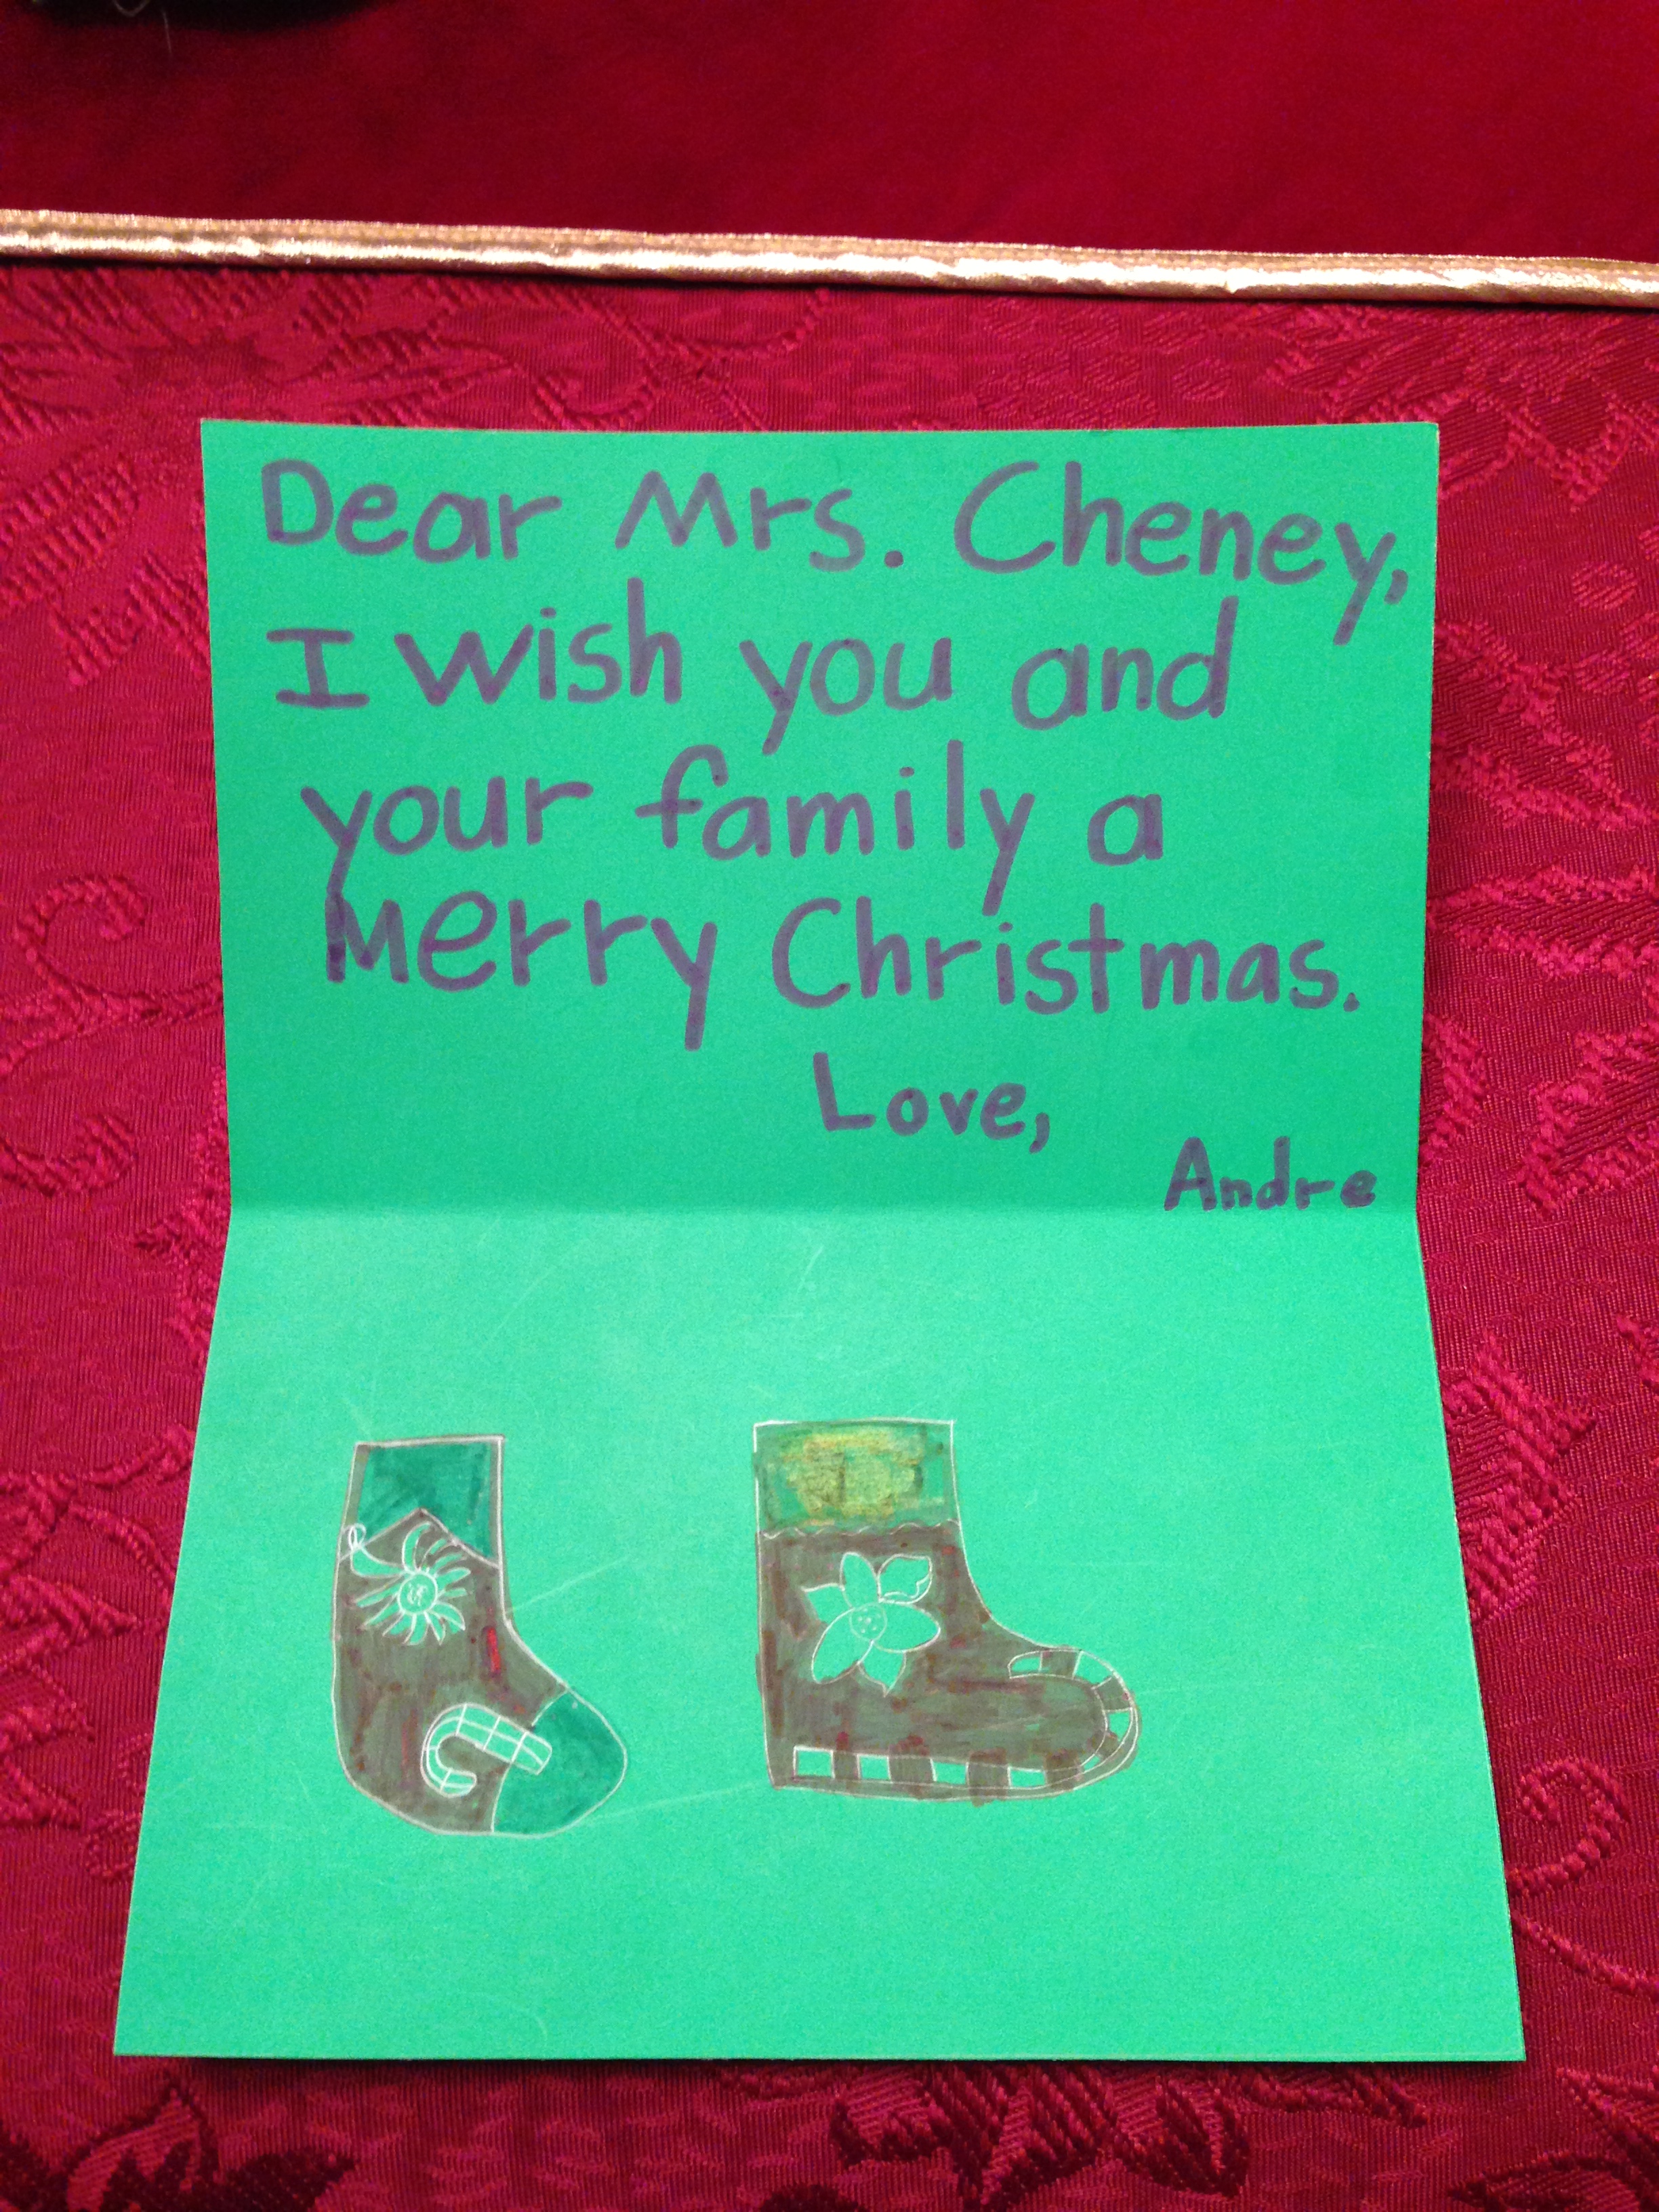 Dear Mrs. Cheney,
I wish you and
your family a
Merry Christmas.
Love,
Andre